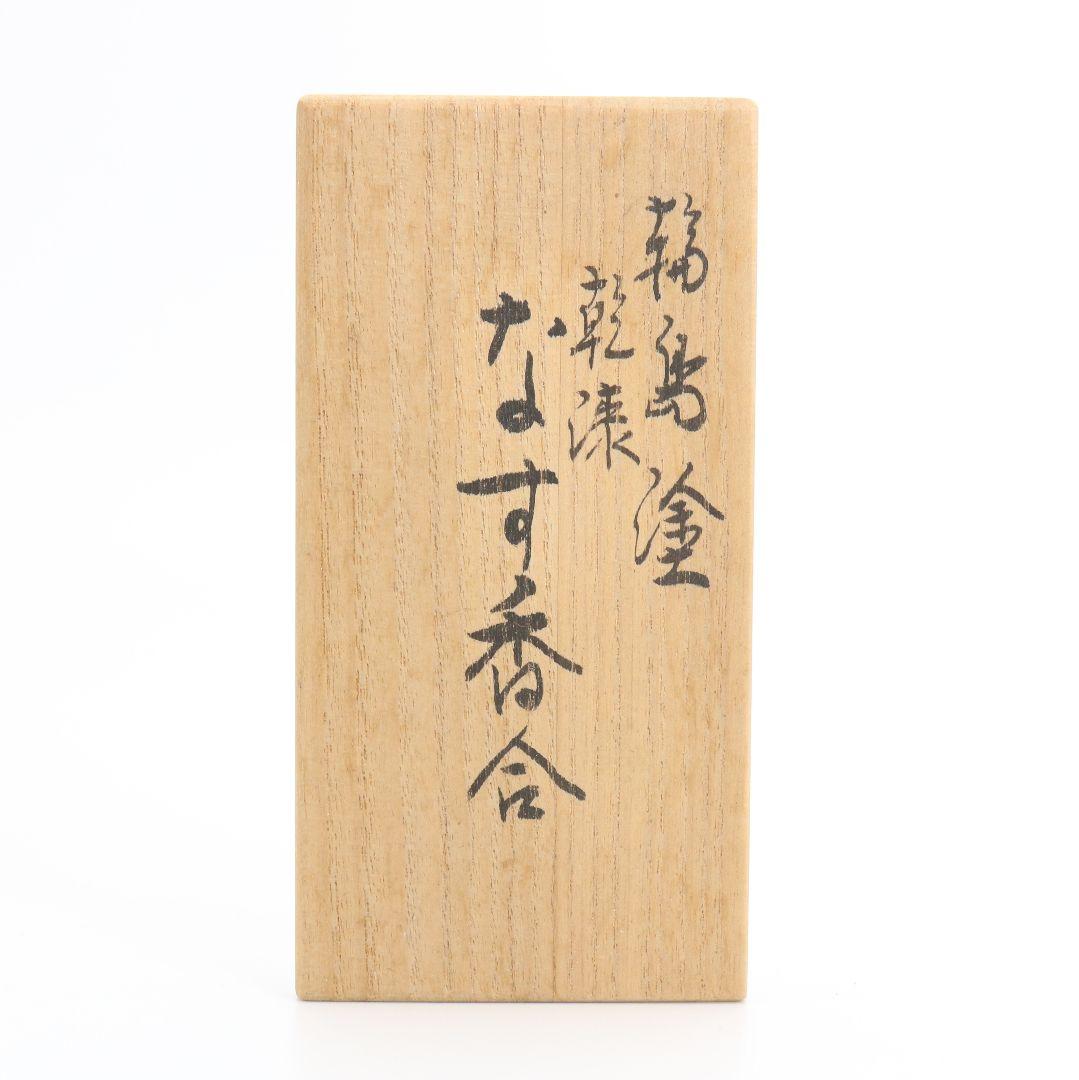 輪島塗
乾漆
なす香合